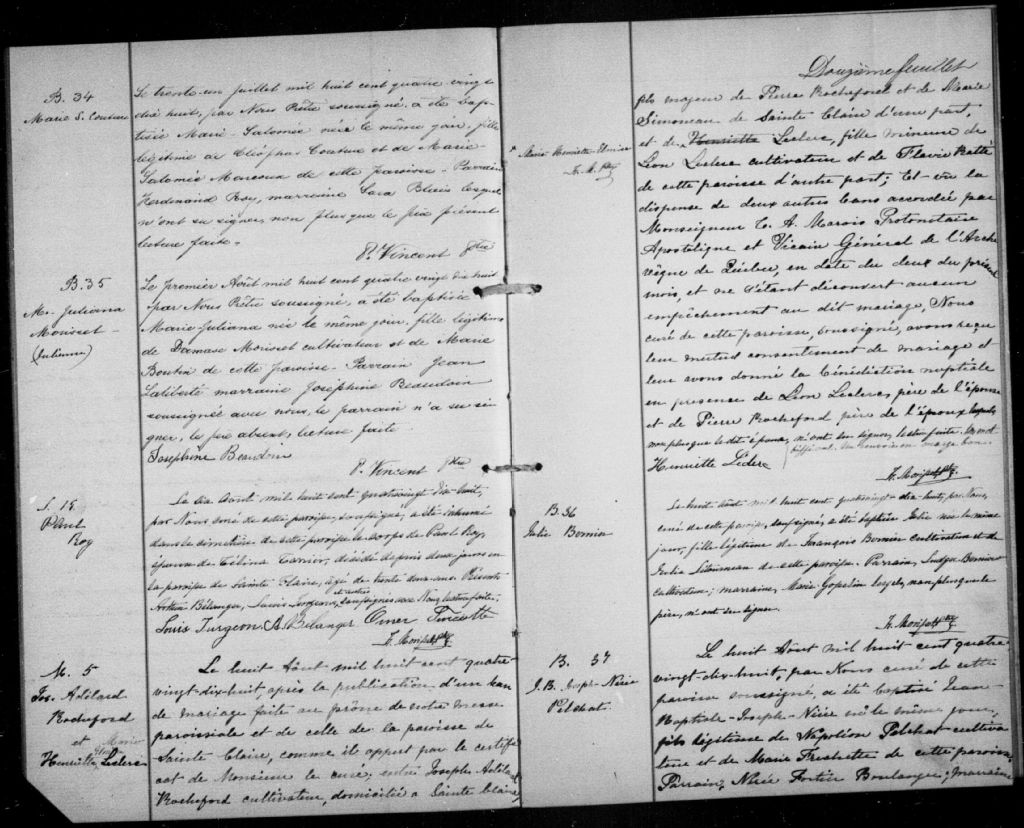 B. 34
Marie S. Couture
Le trente-un juillet mil huit cent quatre vingt
dix huit, par Nous Prêtre soussigné, a été bap-
tisée Marie-Salomée née le même jour, fille
légitime de Cléophas Couture et de Marie
Salomée Marcoux de cette paroisse - Parrain
Ferdinand Roy, marraine Sara Blais lesquels
n'ont su signer, non plus que le père présent
lecture faite.
P. Vincent Ptre
B. 35
M. Juliana
Morisset -
(Julienne)
Le premier Août mil huit cent quatre vingt dix huit
par Nous Prêtre soussigné, a été baptisée
Marie-Juliana née le même jour, fille légitime
de Damase Morisset cultivateur et de Marie
Boutin de cette paroisse - Parrain Jean
Laliberté marraine Joséphine Beaudoin
soussignée avec nous, le parrain n'a su si-
gner, le père absent, lecture faite
Josephine Beaudoin
P. Vincent Ptre
S. 15
Paul
Roy
Le six Août mil huit cent quatrevingt dix-huit,
par Nous curé de cette paroisse, soussigné, a été inhumé
dans le cimetière de cette paroisse le corps de Paul Roy,
époux de Célina, décédé depuis deux jours en
la paroisse de Sainte Claire, agé de trente deux ans. Présents
et autres
Arthur Bélanger, Louis Turgeon, soussignés avec Nous, lecture faite.
Louis Turgeon A. Bélanger Omer Turcotte
M. 5
Jos. Adélard
Rocheford
et Marie
Henriette Leclerc
Le huit Août mil huit cent quatre-
vingt-dix-huit, après la publication d'un ban
de mariage faite au prône de notre messe
paroissiale et de celle de la paroisse de
Sainte Claire, comme il appert par le certifi-
cat de Monsieur le curé, entre Joseph Adélard
Rocheford cultivateur, domicilié a Sainte Claire,
Douzième feuillet
fils majeur de Pierre Rocheford et de Marie
Simoneau de Sainte-Claire d'une part,
et de Henriette Leclerc, fille mineure de
x Marie Henriette
Léon Leclerc cultivateur et de Flavie Ratté
de cette paroisse d'autre part; Et vu la
dispense de deux autres bans accordée par
Monseigneur C. A. Marois Protonotaire
Apostolique et Vicaire Général de l'Arche-
vêque de Québec, en date du deux du présent
mois, et ne s'étant découvert aucun
empêchement au dit mariage, Nous
curé de cette paroisse, soussigné, avons reçu
leur mutuel consentement de mariage et
leur avons donné la bénédiction nuptiale
en présence de Léon Leclerc, père de l'épouse
et de Pierre Rocheford père de l'époux lesquels
non plus que le dit époux, n'ont su signer, lecture faite. Un mot
biffé nul. Un renvoi en marge bon.
Henriette Leclerc
B. 36
Julie Bernier
Le huit Août mil huit cent quatrevingt-dix-huit, par Nous,
curé de cette paroisse, soussigné, a été baptisée Julie née le même
jour, fille légitime de François Bernier cultivateur et de
Julie Létourneau de cette paroisse. Parrain, Bernier
cultivateur; marraine, Marie Gosselin lesquels, non plus que le
père, n'ont su signer.
B. 37
J. B. Joseph-Nérée
Pelchat.
Le huit Août mil huit cent quatre
vingt-dix-huit, par Nous curé de cette
paroisse soussigné, a été baptisé Jean-
Baptiste-Joseph-Nérée né le même jour,
fils légitime de Napoléon Pelchat cultiva-
teur et de Marie Frechette de cette paroisse,
Parrain, Nérée Fortier Boulanger; marraine